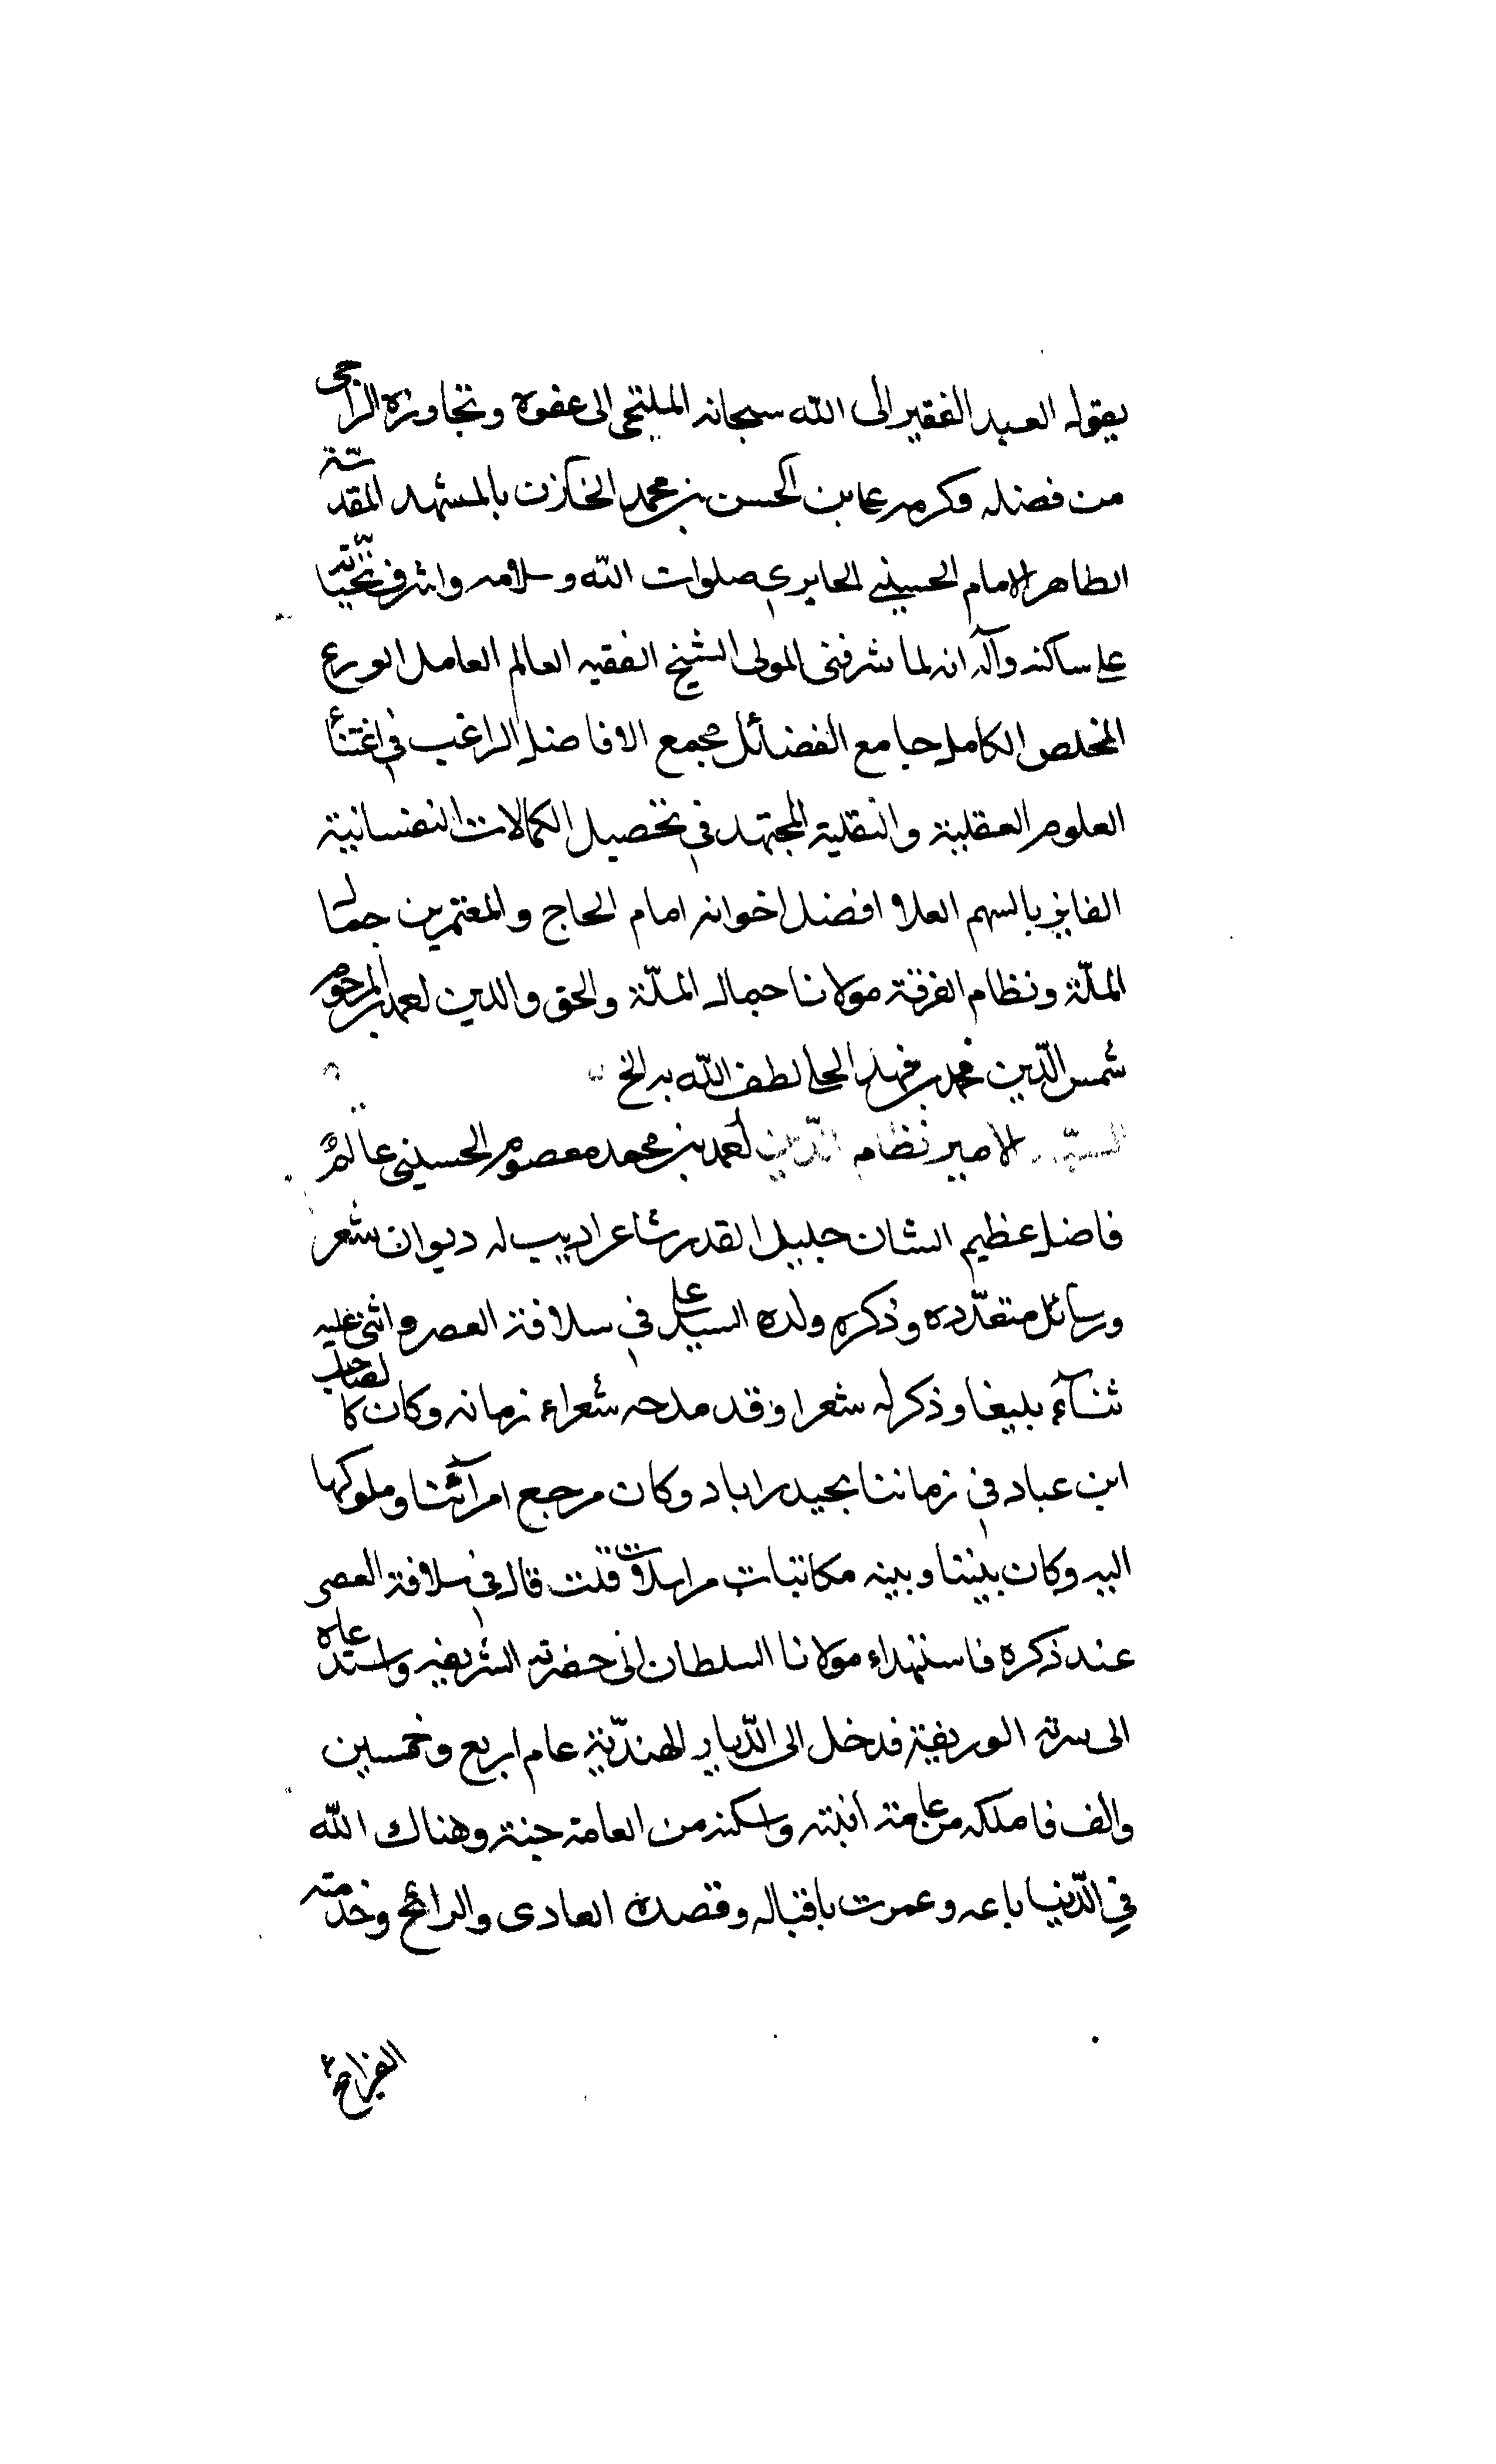 يقول العبد الفقير الى الله سبحانه الملتجى الى عفوه وتجاوزه الراجى
من فضله وكرمه على بن الحسن بن محمد الخازن بالمشهد المقدسة
الطاهر الامام الحسينى الحايرى صلوات الله وسلامه واشرف تحياته
على ساكنه وآله انه لما شرفنى المولى الشيخ الفقيه العالم العامل الورع
المخلص الكامل جامع الفضائل مجمع الافاضل الراغب فى اغتناء
العلوم العقلية والنقلية المجتهد فى تحصيل الكمالات النفسانية
الفايز بالسهم العلا افضل اخوانه امام الحاج والمعتمرين جمال
الملّة ونظام الفرقة مولانا جمال الملّة والحق والدين احمد بن المرحوم
شمس الدّين محمد بن فهد الحلى لطف الله به الخ
السيّد الامير نظام الدّين احمد بن محمد معصوم الحسينى عالمٌ
فاضل عظيم الشان جليل القدر شاعر اديب له ديوان شعر
ورسائل متعدّده وذكره ولده السيد على فى سلافة العصر واثنى عليه
ثنآء بليغا وذكر له شعرا وقد مدحه شعراء زمانه وكان كالصاحب
ابن عباد فى زماننا بحيدراباد وكان مرجع امرآئنا وملوكها
اليه وكان بيننا وبينه مكاتبات مراسلات قلت قال فى سلافة العصر
عند ذكره فاستهداء مولانا السلطان الى حضرته الشريفه واستدعاه
الى سرته الوريفية فدخل الى الدّيار الهندّية عام اربع وخمسين
والف فاملكه من عامه ابنته واسكنه من العامة جنة وهناك الله
في الدّنيا باعه وعمرت باقباله وقصده الغادى والرائح وخدمته